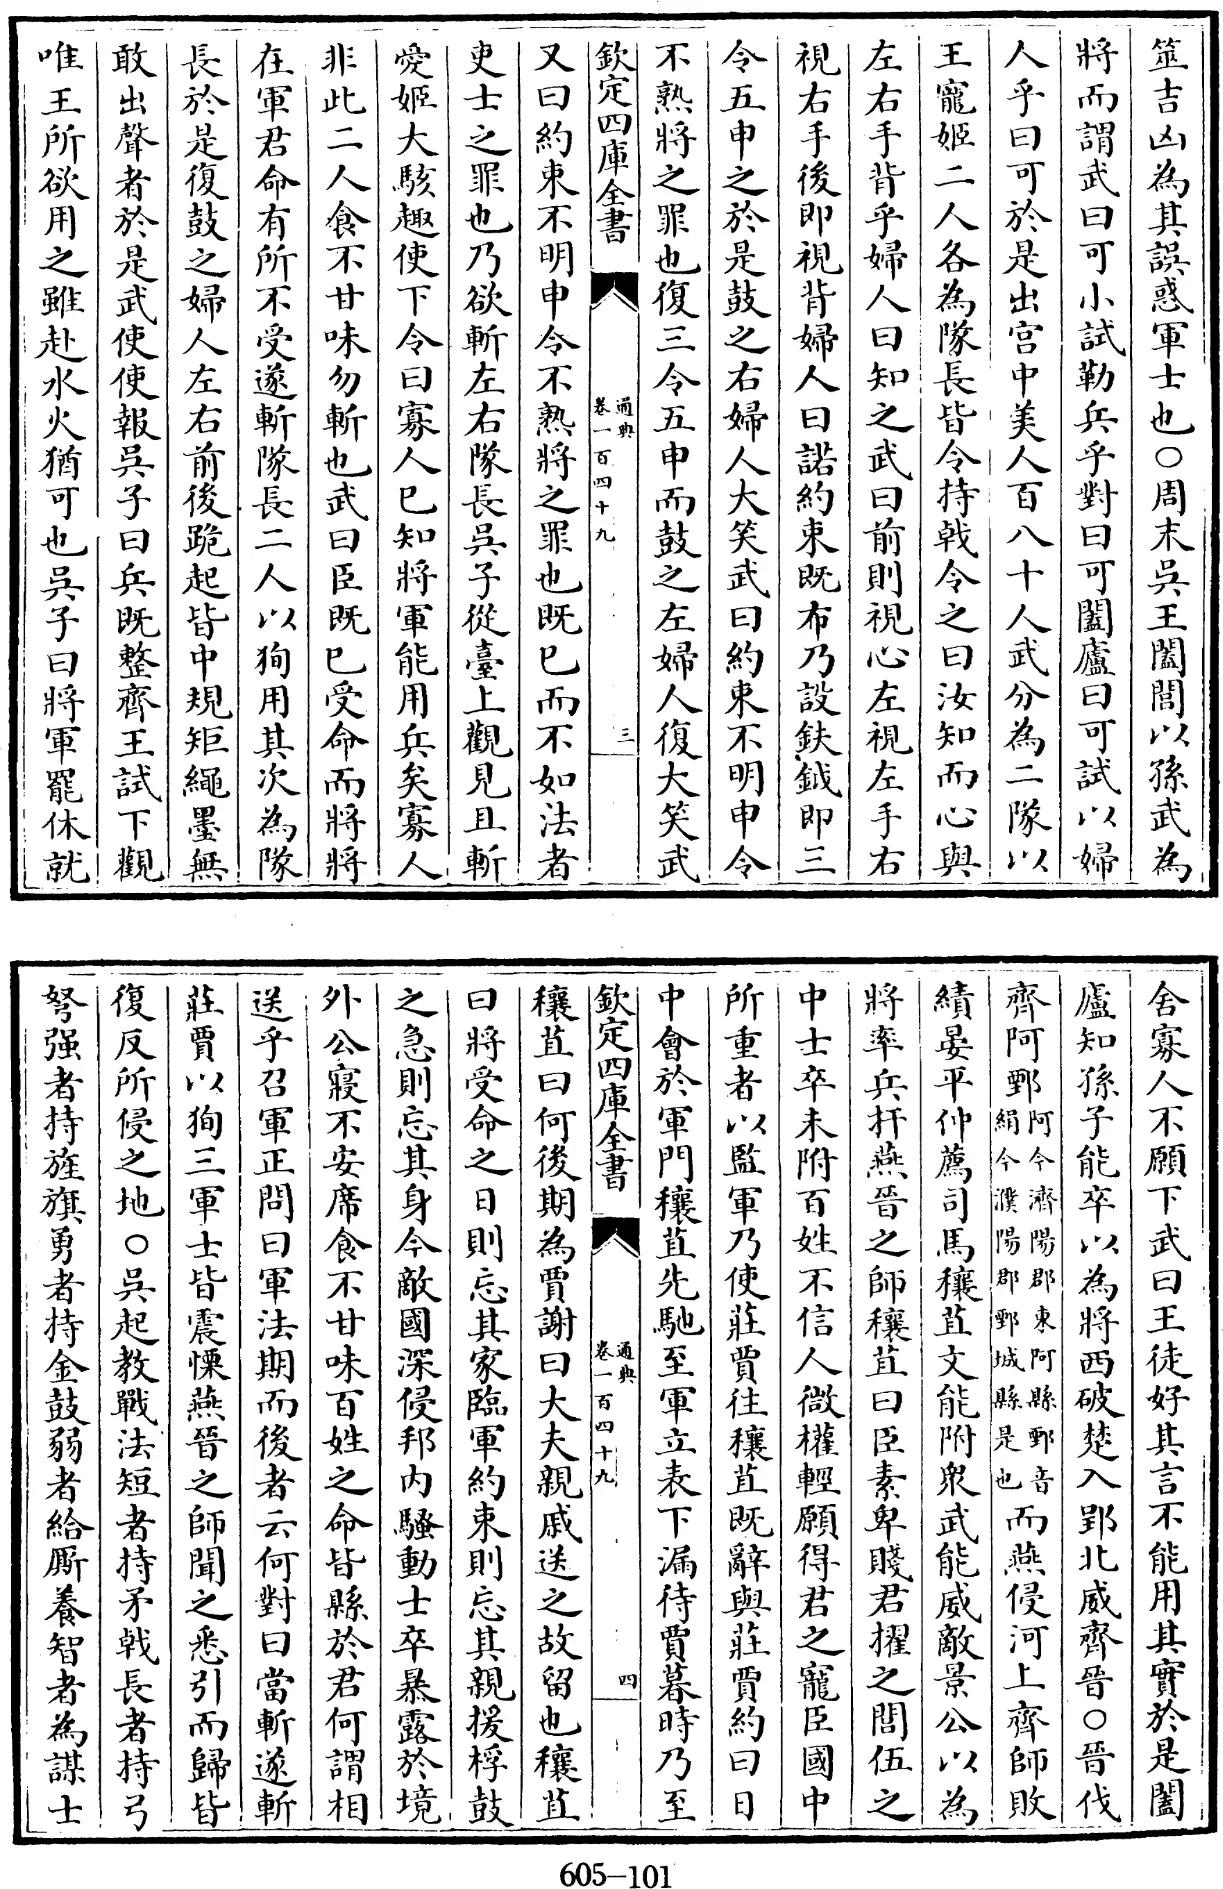 筮吉凶為其誤惑軍士也○周末吳王闔閭以孫武為
將而謂武曰可小試勒兵乎對曰可闔廬曰可試以婦
人乎曰可於是出宮中美人百八十人武分為二隊以
王寵姬二人各為隊長皆令持戟令之曰汝知而心與
左右手背乎婦人曰知之武曰前則視心左視左手右
視右手後即視背婦人曰諾約束既布乃設鈇鉞即三
令五申之於是鼓之右婦人大笑武曰約束不明申令
不熟將之罪也復三令五申而鼓之左婦人復大笑武
欽定四庫全書
通典
卷一百四十九
三
又曰約束不明申令不熟將之罪也既已而不如法者
吏士之罪也乃欲斬左右隊長吳子從臺上觀見且斬
愛姬大駭趣使下令曰寡人已知將軍能用兵矣寡人
非此二人食不甘味勿斬也武曰臣既已受命而將將
在軍君命有所不受遂斬隊長二人以狥用其次為隊
長於是復鼓之婦人左右前後跪起皆中規矩繩墨無
敢出聲者於是武使使報吳子曰兵既整齊王試下觀
唯王所欲用之雖赴水火猶可也吳子曰將軍罷休就
舍寡人不願下武曰王徒好其言不能用其實於是闔
廬知孫子能卒以為將西破楚入郢北威齊晉○晉伐
齊阿鄄阿今濟陽郡東阿縣鄄音絹今濮陽郡鄄城縣是也而燕侵河上齊師敗
績晏平仲薦司馬穰苴文能附衆武能威敵景公以為
將率兵扞燕晉之師穰苴曰臣素卑賤君擢之閭伍之
中士卒未附百姓不信人微權輕願得君之寵臣國中
所重者以監軍乃使莊賈往穰苴既辭與莊賈約曰日
中會於軍門穰苴先馳至軍立表下漏待賈暮時乃至
欽定四庫全書
通典
卷一百四十九
四
穰苴曰何後期為賈謝曰大夫親戚送之故留也穰苴
曰將受命之日則忘其家臨軍約束則忘其親援桴鼓
之急則忘其身今敵國深侵邦内騷動士卒暴露於境
外公寢不安席食不甘味百姓之命皆縣於君何謂相
送乎召軍正問曰軍法期而後者云何對曰當斬遂斬
莊賈以狥三軍士皆震慄燕晉之師聞之悉引而歸皆
復反所侵之地○吳起教戰法短者持矛戟長者持弓
弩强者持旌旗勇者持金鼓弱者給厮養智者為謀士
605-101